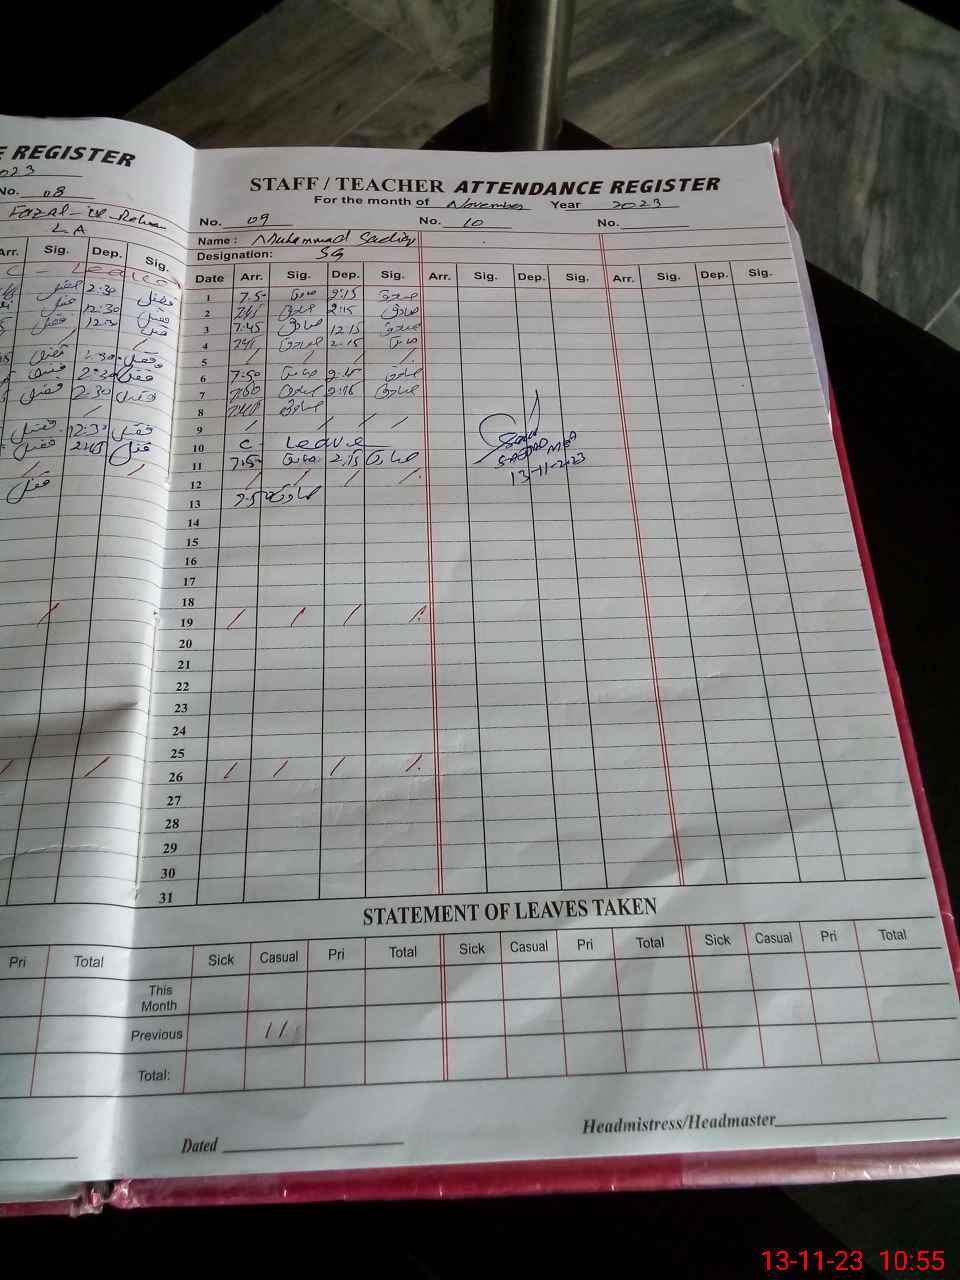 E REGISTER
2023
No. 08
Fazal-ur-Rehman
LA
Arr. Sig. Dep. Sig.
C - Leave
2:30
12:30
2:30
12:30
2:45
Pri Total
STAFF / TEACHER ATTENDANCE REGISTER
For the month of November Year 2023
No. 09 No. 10 No.
Name : Muhammad Sadiq
Designation: SG
Date Arr. Sig. Dep. Sig. Arr. Sig. Dep. Sig. Arr. Sig. Dep. Sig.
1 7:50 صادق 2:15 صادق
2 صادق 2:15 صادق
3 7:45 صادق 12:15 صادق
4 صادق 2:15 صادق
5 / / / /
6 7:50 صادق 2:15 صادق
7 7:50 صادق 2:15 صادق
8 صادق
9 / / / /
10 C - Leave
11 7:50 صادق 2:15 صادق
12 / / / /
13 7:50 صادق
13-11-2023
14
15
16
17
18
19 / / / /
20
21
22
23
24
25
26 / / / /
27
28
29
30
31
STATEMENT OF LEAVES TAKEN
Sick Casual Pri Total Sick Casual Pri Total Sick Casual Pri Total
This Month
Previous 11
Total:
Dated
Headmistress/Headmaster
13-11-23 10:55